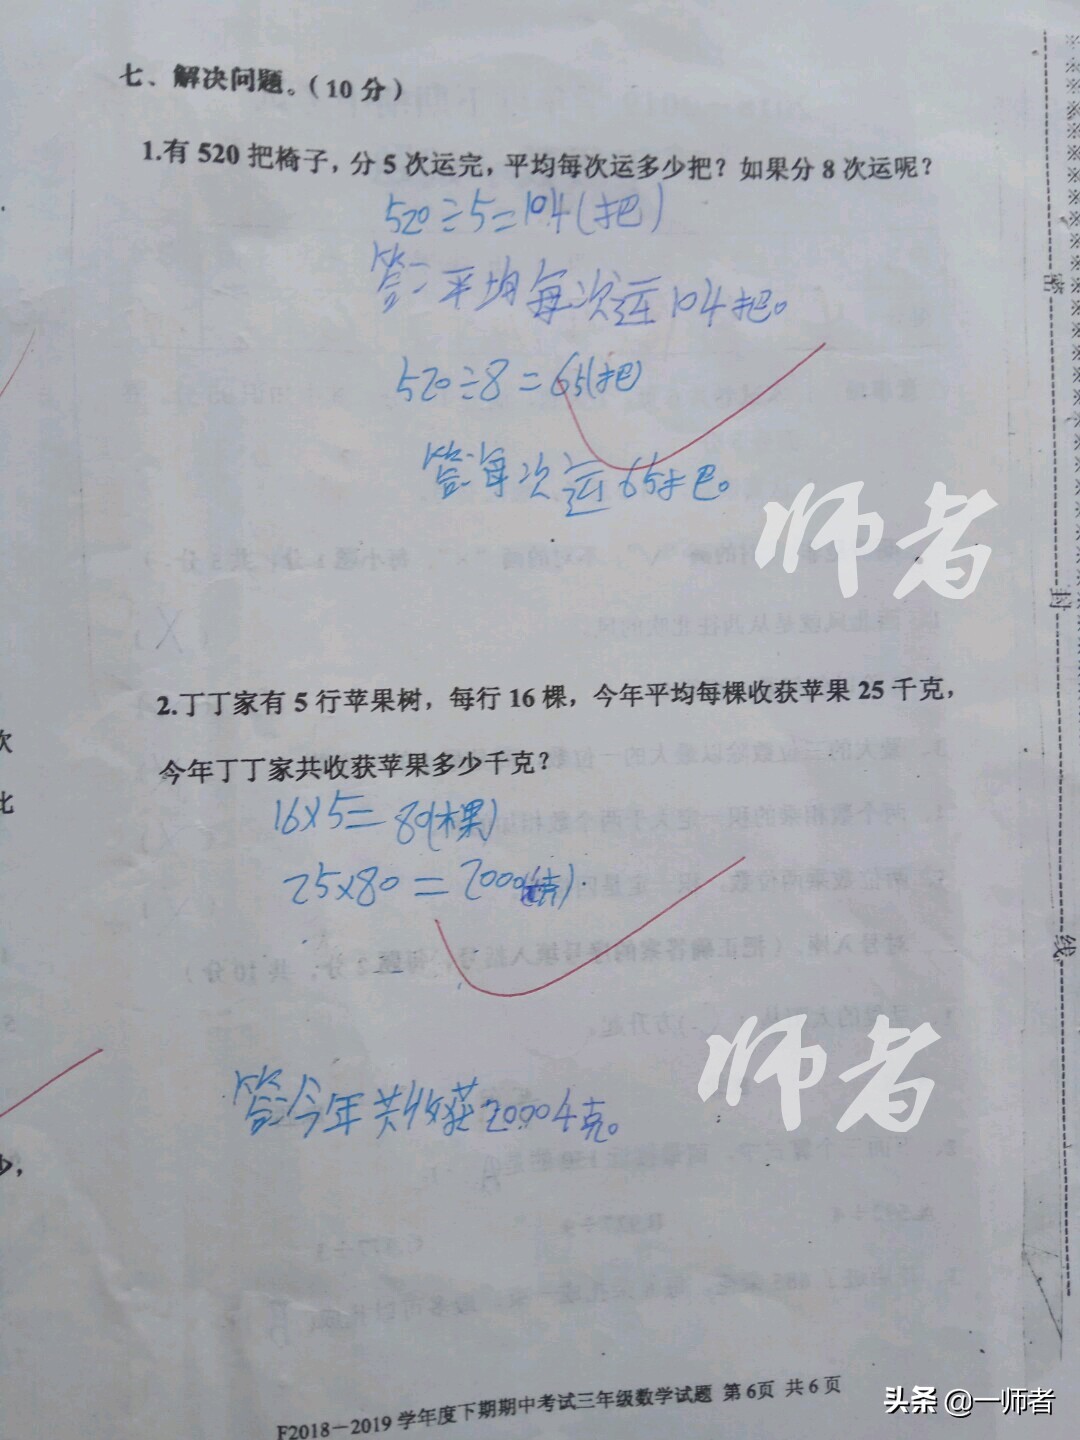 七、解决问题。（10分）
1.有520把椅子，分5次运完，平均每次运多少把？如果分8次运呢？
520÷5=104(把)
答:平均每次运104把。
520÷8=65(把)
答:每次运65把。
师者
2.丁丁家有5行苹果树，每行16棵，今年平均每棵收获苹果25千克，
今年丁丁家共收获苹果多少千克？
16×5=80(棵)
25×80=2000(千克)
师者
答:今年共收获2000千克。
F2018－2019学年度下期期中考试三年级数学试题 第6页 共6页
头条 @一师者
密
封
线
次
比
少，